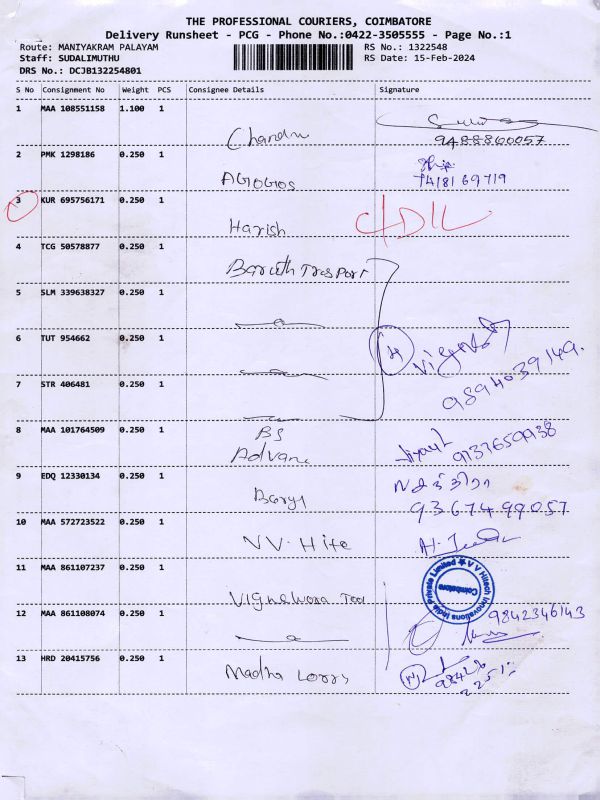 THE PROFESSIONAL COURIERS, COIMBATORE
Delivery Runsheet - PCG - Phone No.:0422-3505555 - Page No.:1
Route: MANIYAKRAM PALAYAM RS No.: 1322548
Staff: SUDALIMUTHU RS Date: 15-Feb-2024
DRS No.: DCJB132254801
S No Consignment No Weight PCS Consignee Details Signature
1 MAA 108551158 1.100 1
Chandru 9488860057
2 PMK 1298186 0.250 1
AGOGOS 7418169719
3 KUR 695756171 0.250 1
Harish
4 TCG 50578877 0.250 1
5 SLM 339638327 0.250 1
6 TUT 954662 0.250 1
7 STR 406481 0.250 1
9894039149.
8 MAA 101764509 0.250 1
BS
9137659938
9 EDQ 12330134 0.250 1
93674 99057
10 MAA 572723522 0.250 1
11 MAA 861107237 0.250 1
V V Hitech Innovations India Private Limited
Coimbatore
12 MAA 861108074 0.250 1
9842346143
13 HRD 20415756 0.250 1
Madha